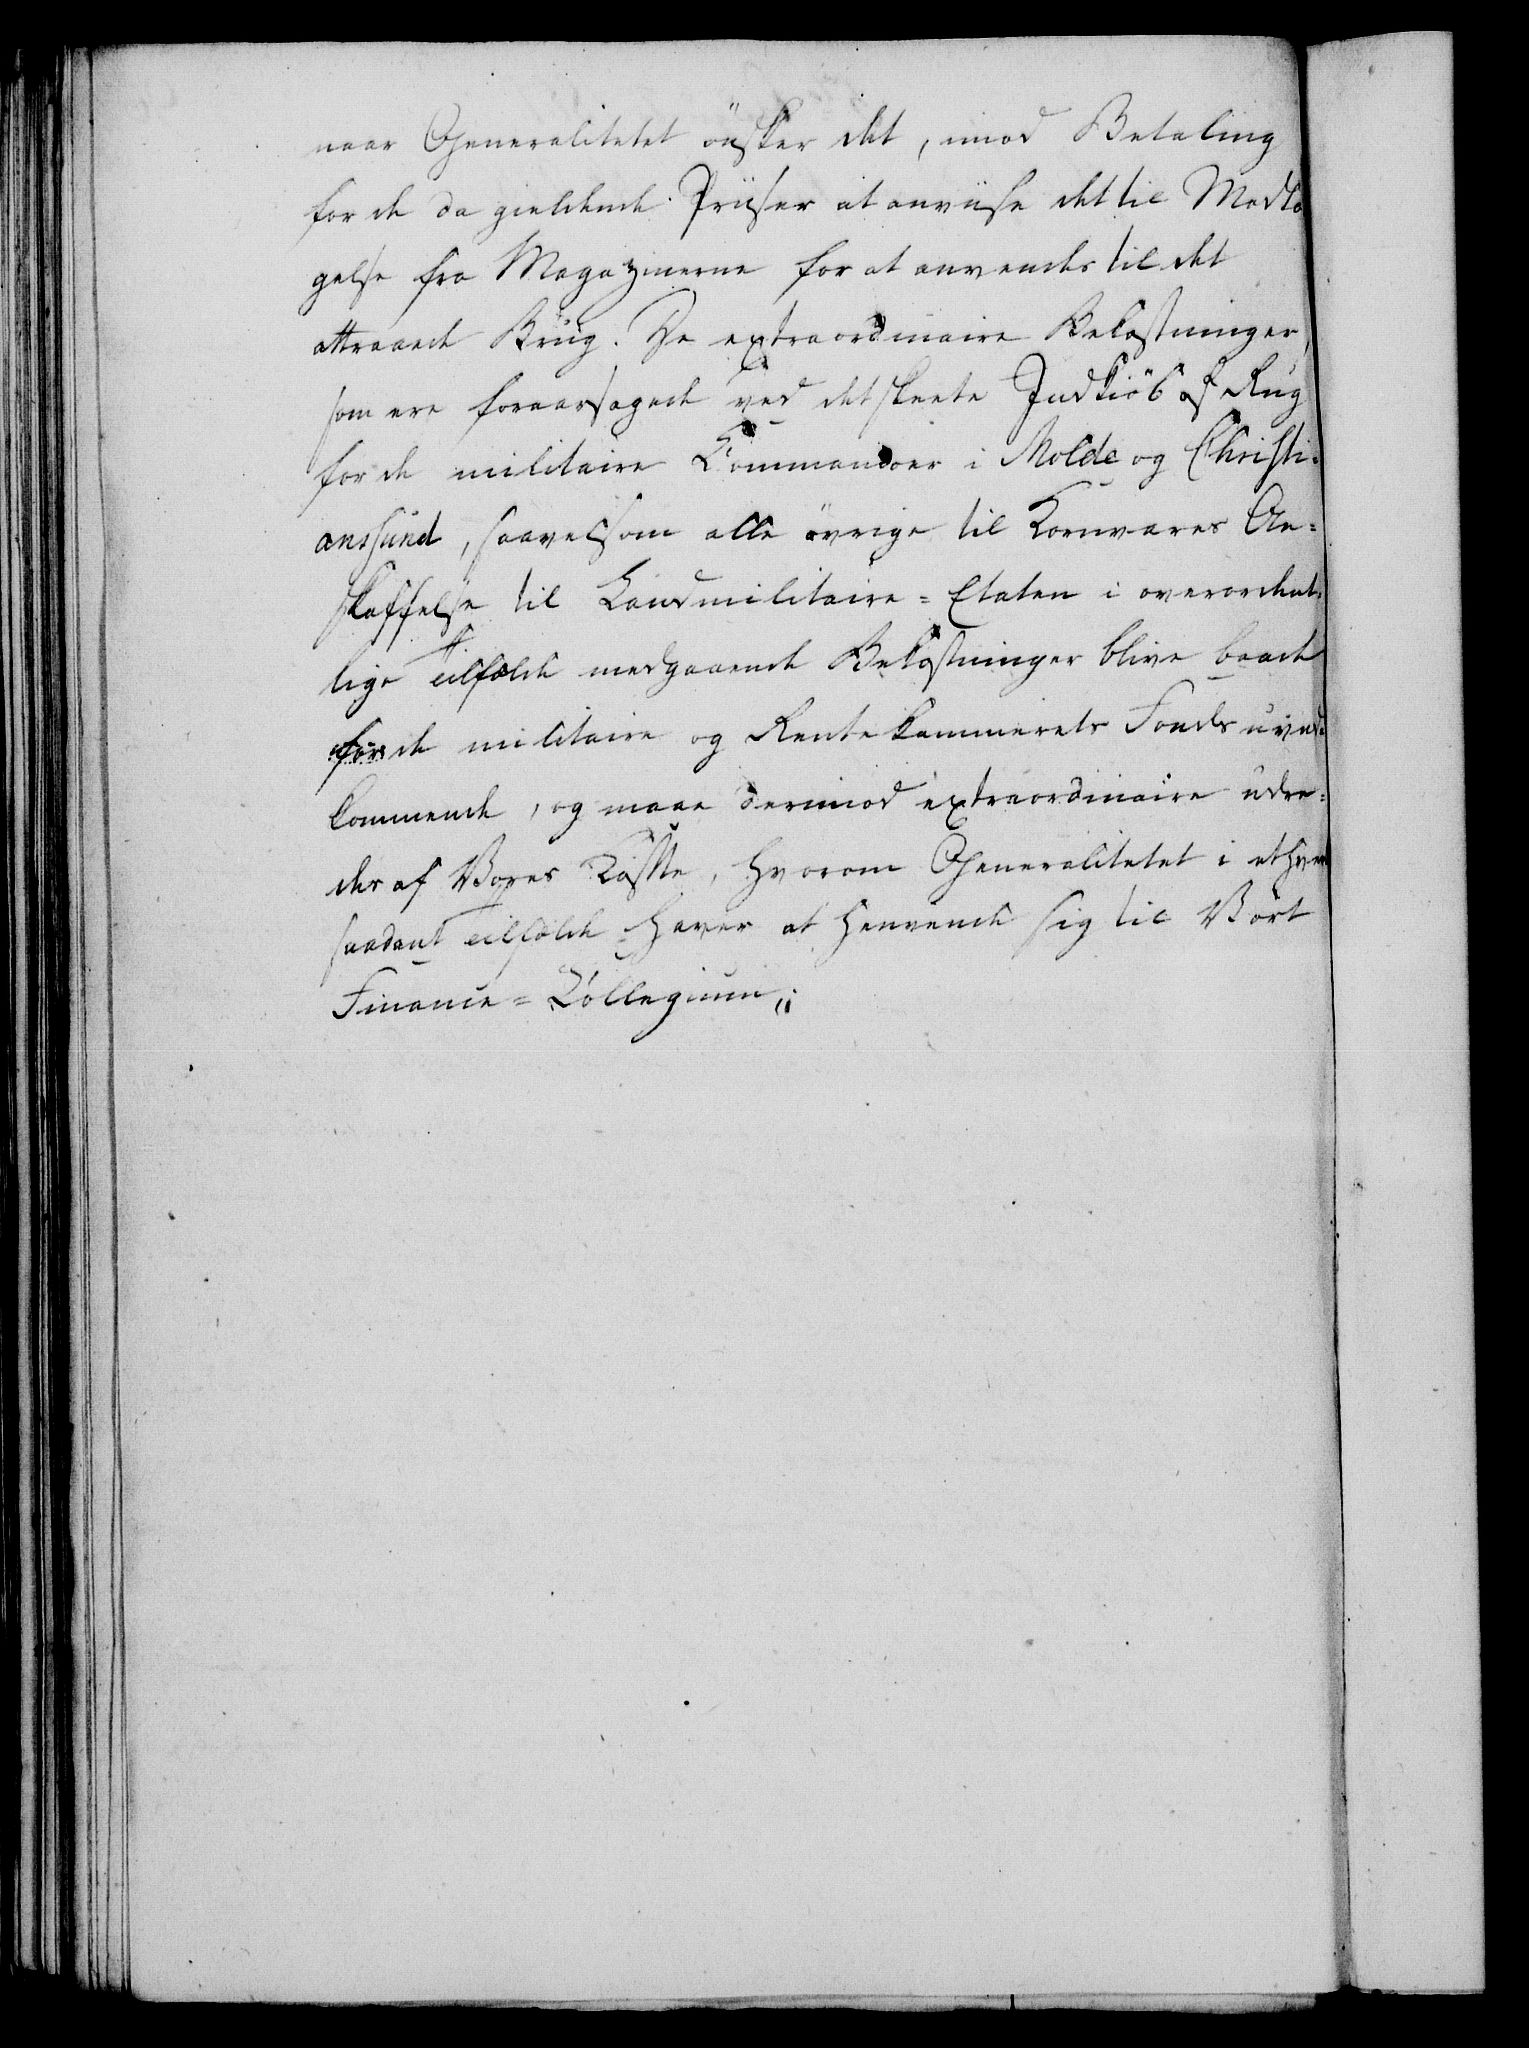 naar Generalitetet önsker det, imod Betaling
for de da gieldende Priiser at anviise det til Modta
gelse fra Magazinerne for at anvendes til det
attraaede Brug. De extraordinaire Bekostninger,
som ere foraarsagede ved det skeete Indkiöb af Rug
for de militaire Commandoer i Molde og Christi-
anssund, saavelsom alle övrige til Kornvares An=
skaffelse til Landmilitaire=Etaten i overordent-
lige Tilfælde medgaaende Bekostninger blive baade
for de militaire og Rentekammerets Fonds uved-
kommende, og maae derimod extraordinaire udre=
des af Vores Kasse, hvorom Generalitetet i ethvert
saadant Tilfælde haver at henvende sig til Vort
Finance=Collegium;